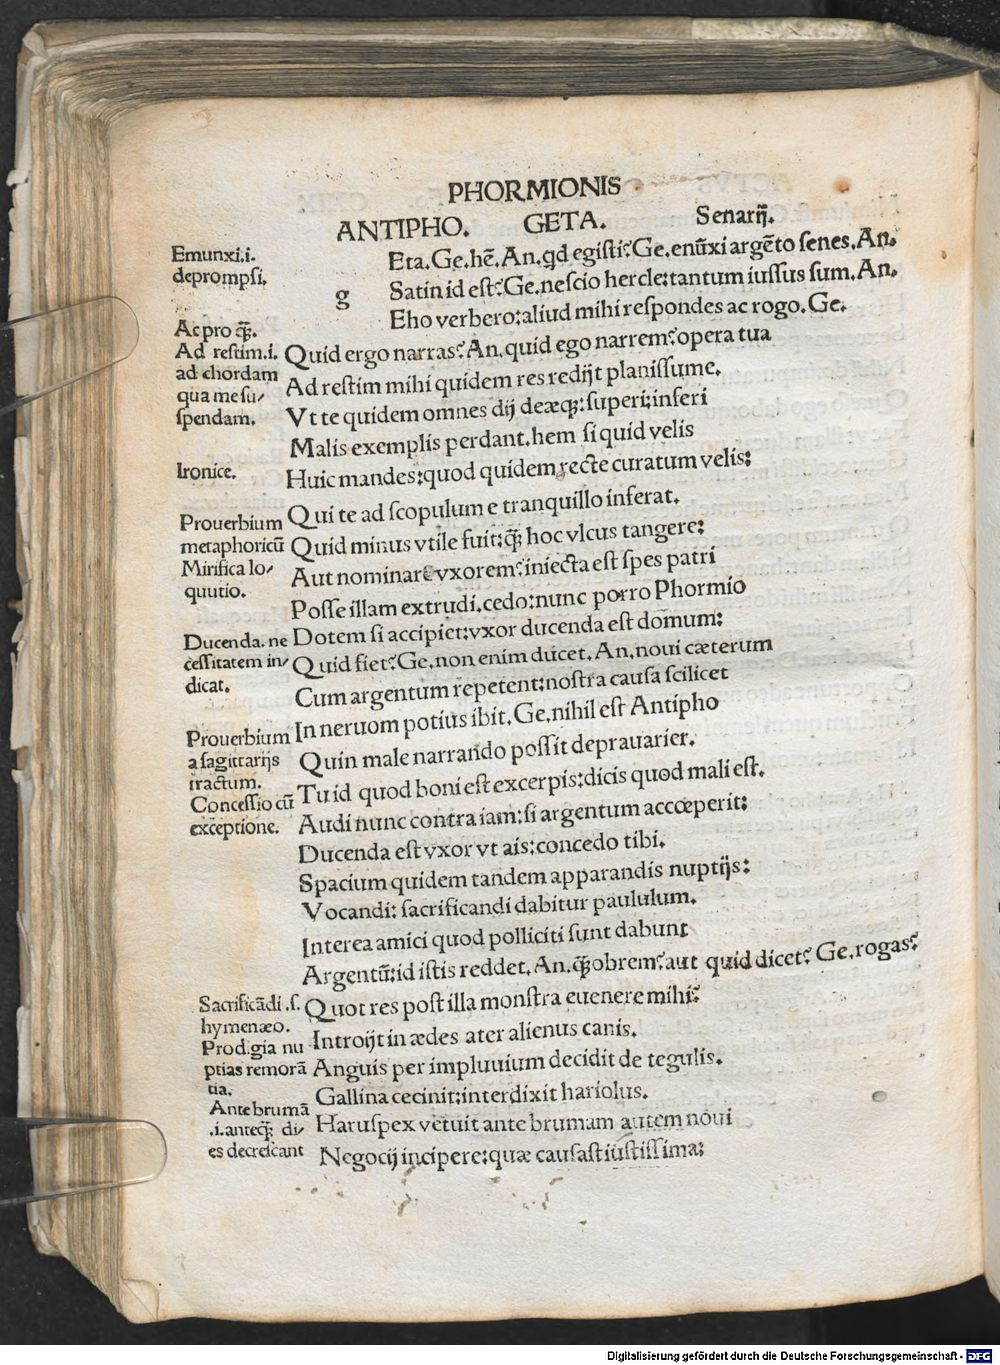 PHORMIONIS
ANTIPHO. GETA. Senarĳ.
Emunxi.i.
deprompsi.
g
Eta. Ge. hē. An. qd egisti? Ge. enūxi argēto senes. An.
Satin id est? Ge. nescio hercle: tantum iussus sum. An.
Eho verbero: aliud mihi respondes ac rogo. Ge.
Ac pro q̄ꝫ.
Ad restim.i.
ad chordam
qua me su/
spendam.
Quid ergo narras? An. quid ego narrem? opera tua
Ad restim mihi quidem res redĳt planissume.
Vt te quidem omnes dĳ deæqꝫ: superi: inferi
Malis exemplis perdant. hem si quid velis
Ironice.
Huic mandes: quod quidem recte curatum velis:
Qui te ad scopulum e tranquillo inferat.
Prouerbium
metaphoricū
Mirifica lo/
quutio.
Quid minus vtile fuit: q̄ꝫ hoc vlcus tangere:
Aut nominare vxorem? iniecta est spes patri
Posse illam extrudi. cedo: nunc porro Phormio
Ducenda. ne
cessitatem in/
dicat.
Dotem si accipiet: vxor ducenda est domum:
Quid fiet? Ge. non enim ducet. An. noui cæterum
Cum argentum repetent: nostra causa scilicet
In neruom potius ibit. Ge. nihil est Antipho
Prouerbium
a sagittarĳs
tractum.
Concessio cū
exceptione.
Quin male narrando possit deprauarier.
Tu id quod boni est excerpis: dicis quod mali est.
Audi nunc contra iam: si argentum accœperit:
Ducenda est vxor vt ais: concedo tibi.
Spacium quidem tandem apparandis nuptĳs:
Vocandi: sacrificandi dabitur paululum.
Interea amici quod polliciti sunt dabunt
Argentū: id istis reddet. An. q̄ꝫobrem? aut quid dicet? Ge. rogas?
Sacrificādi .s.
hymenæo.
Prodigia nu
ptias remorā
tia.
Ante brumā
.i. anteq̄ꝫ di/
es decrescant
Quot res post illa monstra euenere mihi?
Introĳt in ædes ater alienus canis.
Anguis per impluuium decidit de tegulis.
Gallina cecinit: interdixit hariolus.
Haruspex vetuit ante brumam autem noui
Negocĳ incipere: quæ causast iustissima:
Digitalisierung gefördert durch die Deutsche Forschungsgemeinschaft - DFG